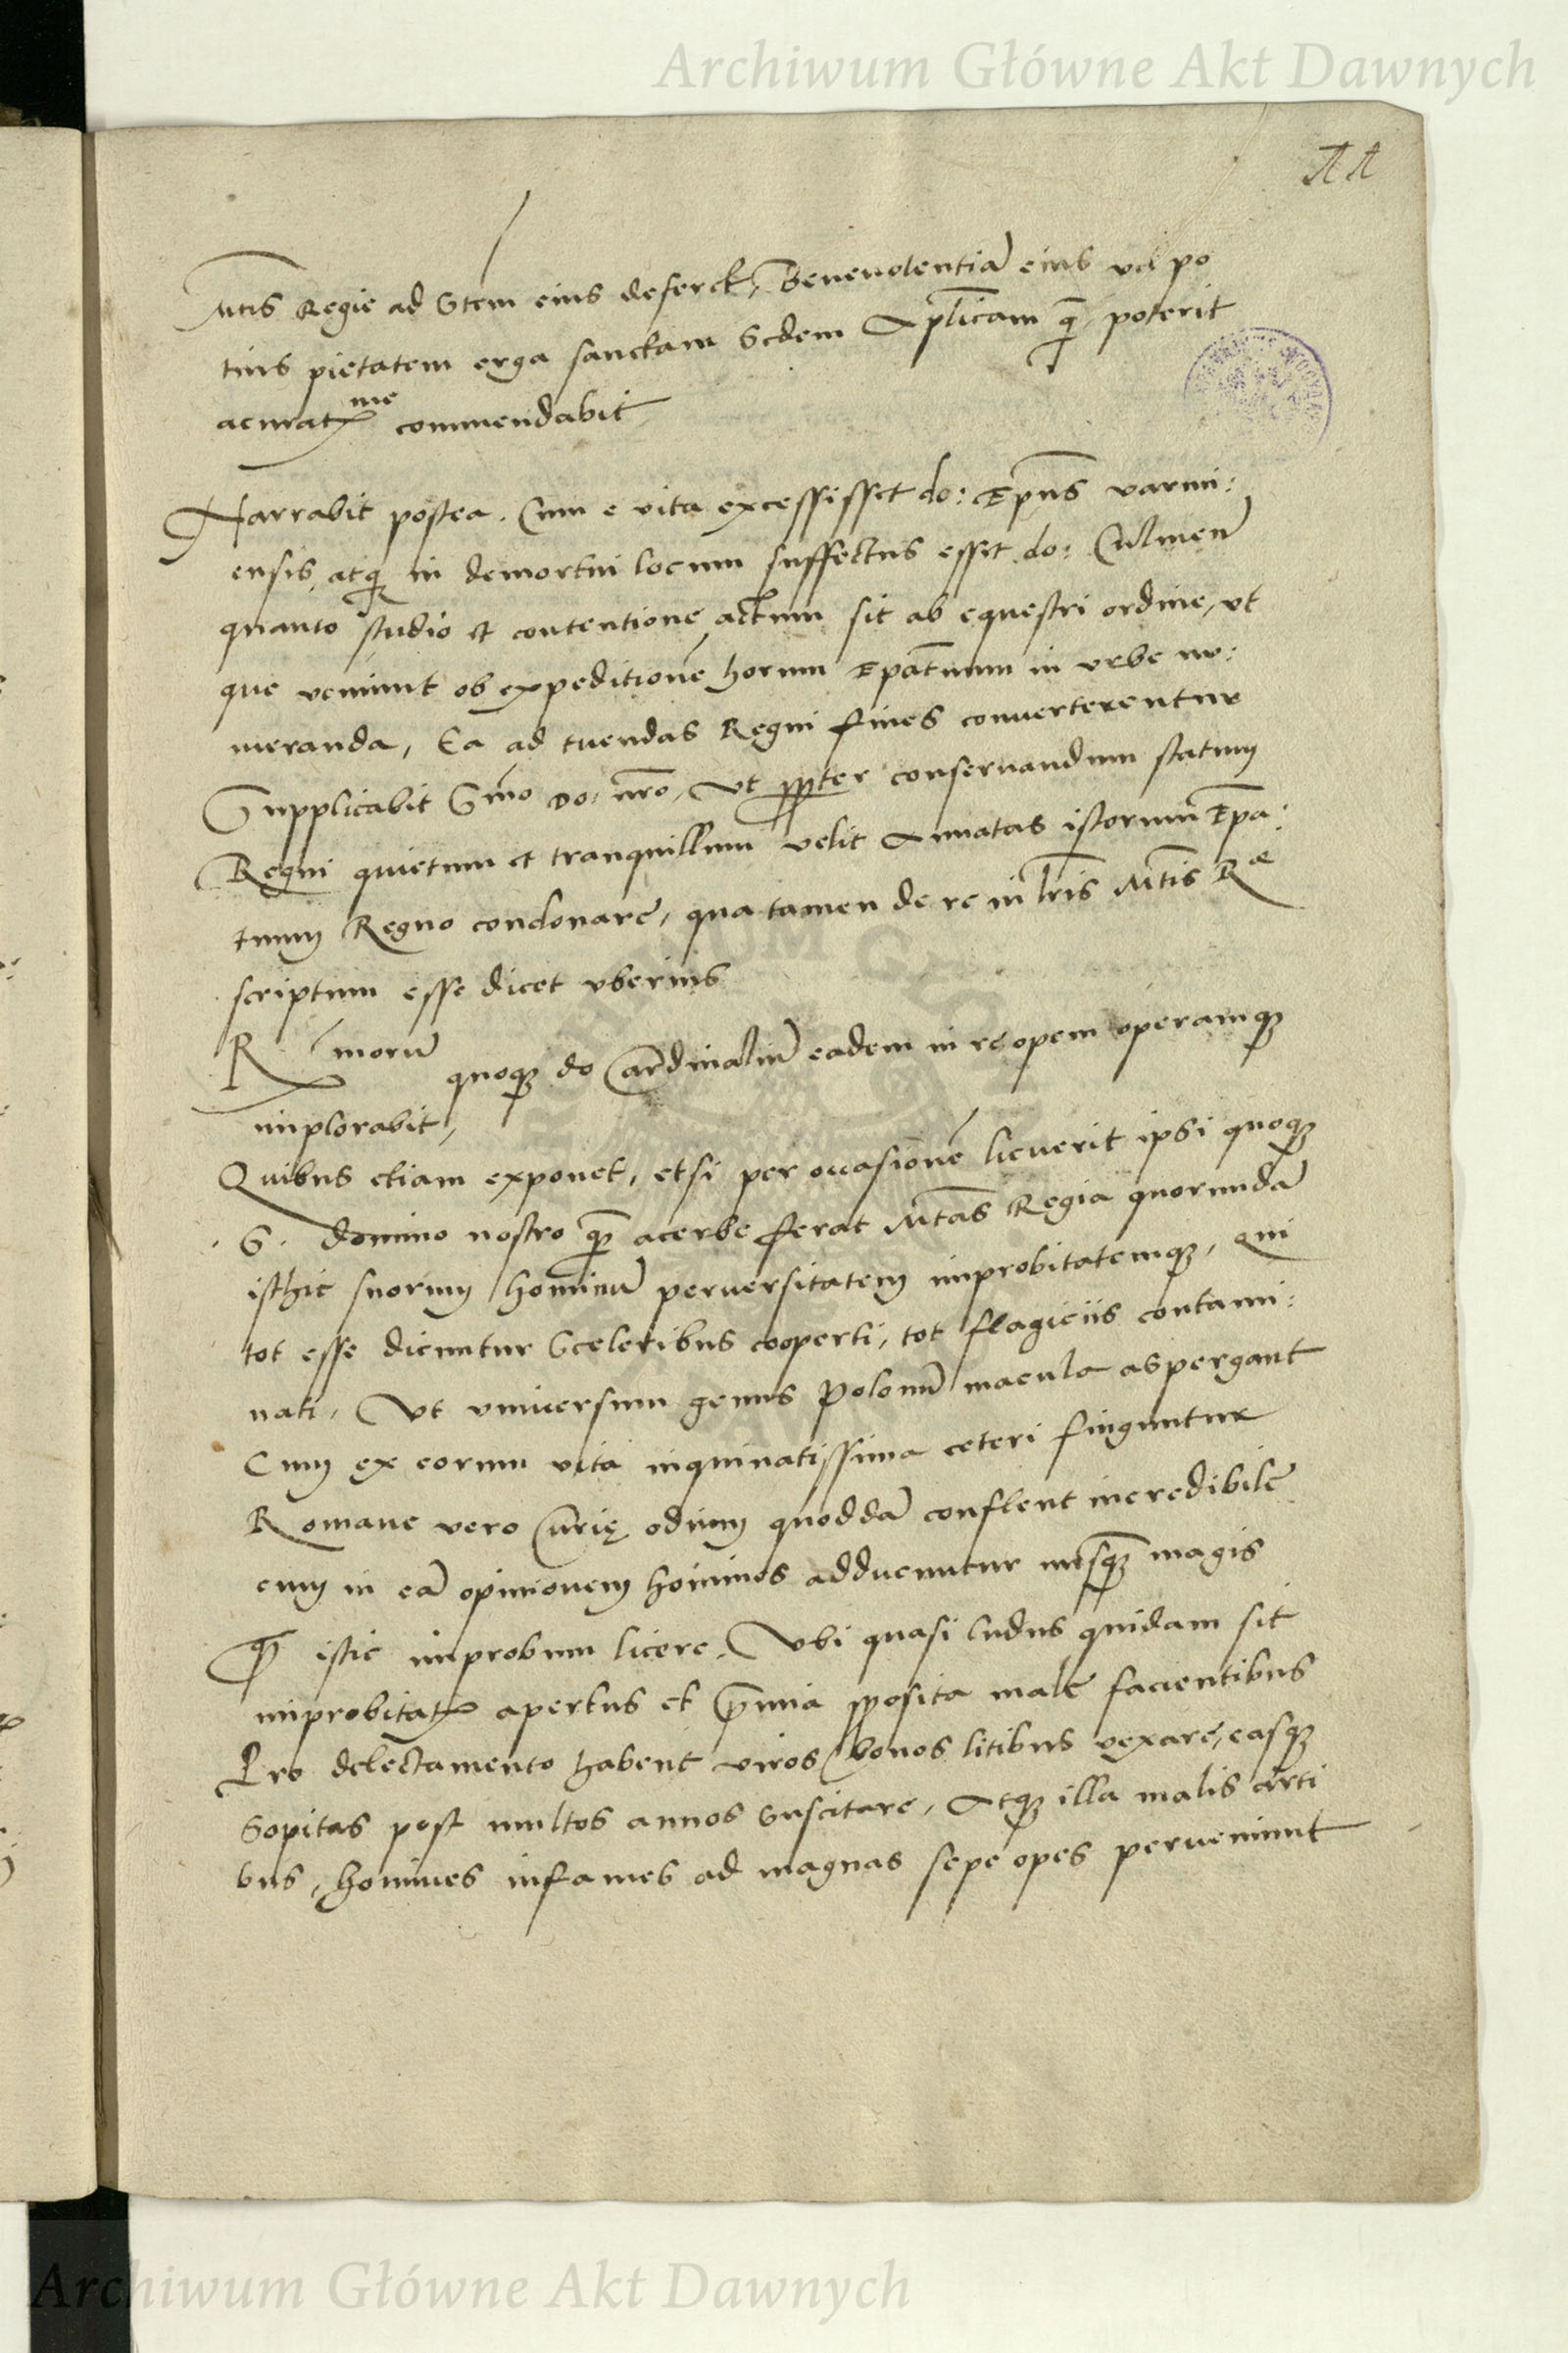 Archiwum Główne Akt Dawnych
11
Mtis Regie ad Stem eius deferet, Benevolentiā eius vel po
tius pietatem erga sanctam Sedem Aplicam q̄ poterit
acuratme commendabit
Narrabit postea. Cum e vita excessisset do: Epūs varmi:
ensis, atq in demortui locum suffectus esset do: Culmeñ
quanto studio et contentione actum sit ab equestri ordine, vt
que veniunt ob expeditionē horum Epatuum in vrbe nu:
meranda, Ea ad tuendas Regni fines converterentur
Supplicabit Smo do: nro, Vt ppter conservandum statum
Regni quietum et tranquillum velit Annatas istorum Epa:
tuum Regno condonare, qua tamen de re in lris Mtis Rae
scriptum esse dicet vberius
R morū quoq do Cardinaliū eadem in re opem operamq
implorabit,
Quibus etiam exponet, etsi per occasionē licuerit ipsi quoq
S. domino nostro q̄ acerbe ferat Mtas Regia quorundā
isthic suorum hominū perversitatem improbitatemq, qui
tot esse dicuntur Sceleribus cooperti, tot flagiciis contami:
nati, Vt vniversum genus Polonū macula aspergant
Cum ex eorum vita inquinatissima ceteri finguntur
Romane vero Curię odium quoddā conflent incredibile
cum in eā opinionem homines adducuntur nusq̄ magis
q̄ istic improbum licere. Vbi quasi ludus quidam sit
improbitat apertus et p̄mia pposita male facientibus
Pro delectamento habent viros bonos litibus vexare, easq
Sopitas post multos annos Suscitare, Atq illa malis arti
bus, homines infames ad magnas sepe opes perveniunt
Archiwum Główne Akt Dawnych